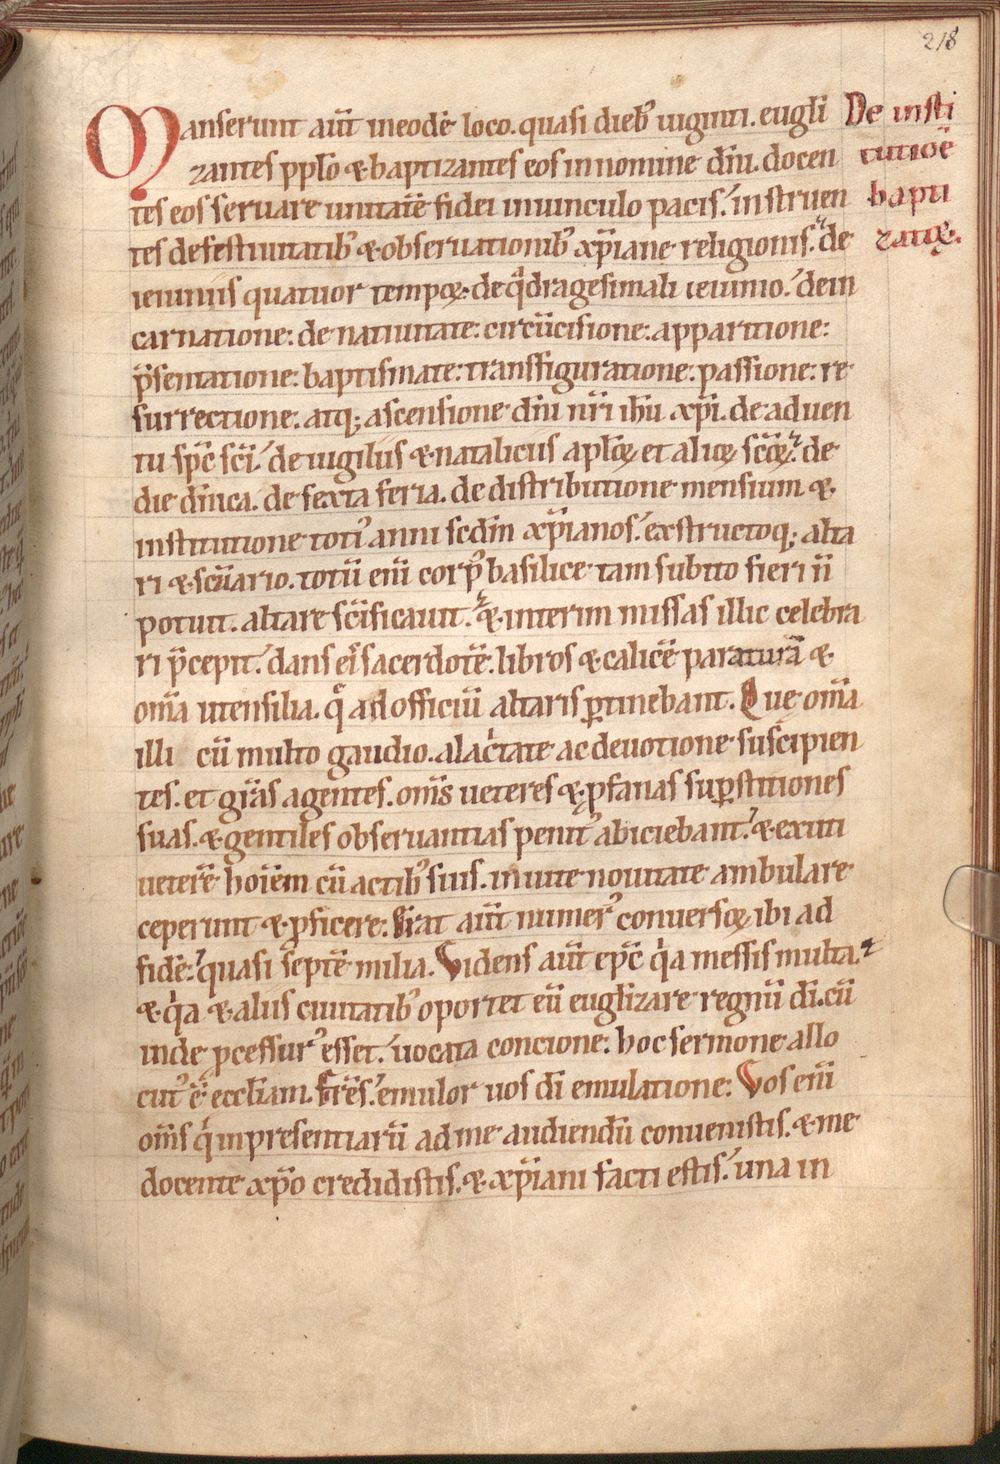 218
De insti
tutiōe
bapti
zatꝝ.
Manserunt aut̄ in eodē loco. quasi dieb᾽ uiginti. eugłi
zantes pplō & baptizantes eos in nomine dn̄i. docen
tes eos seruare unitatē fidei in uinculo pacis. instruen
tes de festiuitatib᾽ & obseruationib᾽ xp̄iane religionis. de
ieiuniis quatuor tempoꝝ. de q̄dragesimali ieiunio. de in
carnatione: de natiuitate: circūcisione: apparitione:
p̄sentatione: baptismate: transfiguratione: passione: re
surrectione. atq; ascensione dn̄i nr̄i ihū xp̄i. de aduen
tu sp̄c sc̄i. de uigiliis & nataliciis apl̄oꝝ et alioꝝ sc̄oꝝ. de
die dn̄ica. de sexta feria. de distributione mensium &
institutione toti᾽ anni scd̄m xp̄ianos. exstructoq; alta
ri & scūario. totū eni̅ corp᾽ basilice tam subito fieri n̄
potuit. altare sc̄ificauit. & interim missas illic celebra
ri p̄cepit. dans eis sacerdotē. libros & calicē paraturā &
om̄a utensilia. q̄ ad officiū altaris ꝑtinebant. Que om̄a
illi cū multo gaudio. alac̍tate ac deuotione suscipien
tes. et gr̄as agentes. om̄s ueteres & ꝓfanas suꝑstitiones
suas. & gentiles obseruantias penit᾽ abiciebant. & exuti
ueterē hoīem cū actib᾽ suis. in uite nouitate ambulare
ceperunt & ꝓficere. Erat aut̄ numer᾽ conuersoꝝ ibi ad
fidē. quasi septē milia. Videns aut̄ ep̄c q̍a messis multa.
& q̍a & aliis ciuitatib᾽ oportet eū eugłizare regnū dī. cū
inde ꝓcessur᾽ esset. uocata concione. hoc sermone allo
cut᾽ ē eccl̄iam. Fr̄es. emulor uos dī emulatione. Vos eni̅
om̄s q̍ in presentiarū ad me audiendū conuenistis. & me
docente xp̄o credidistis. & xp̄iani facti estis. una in